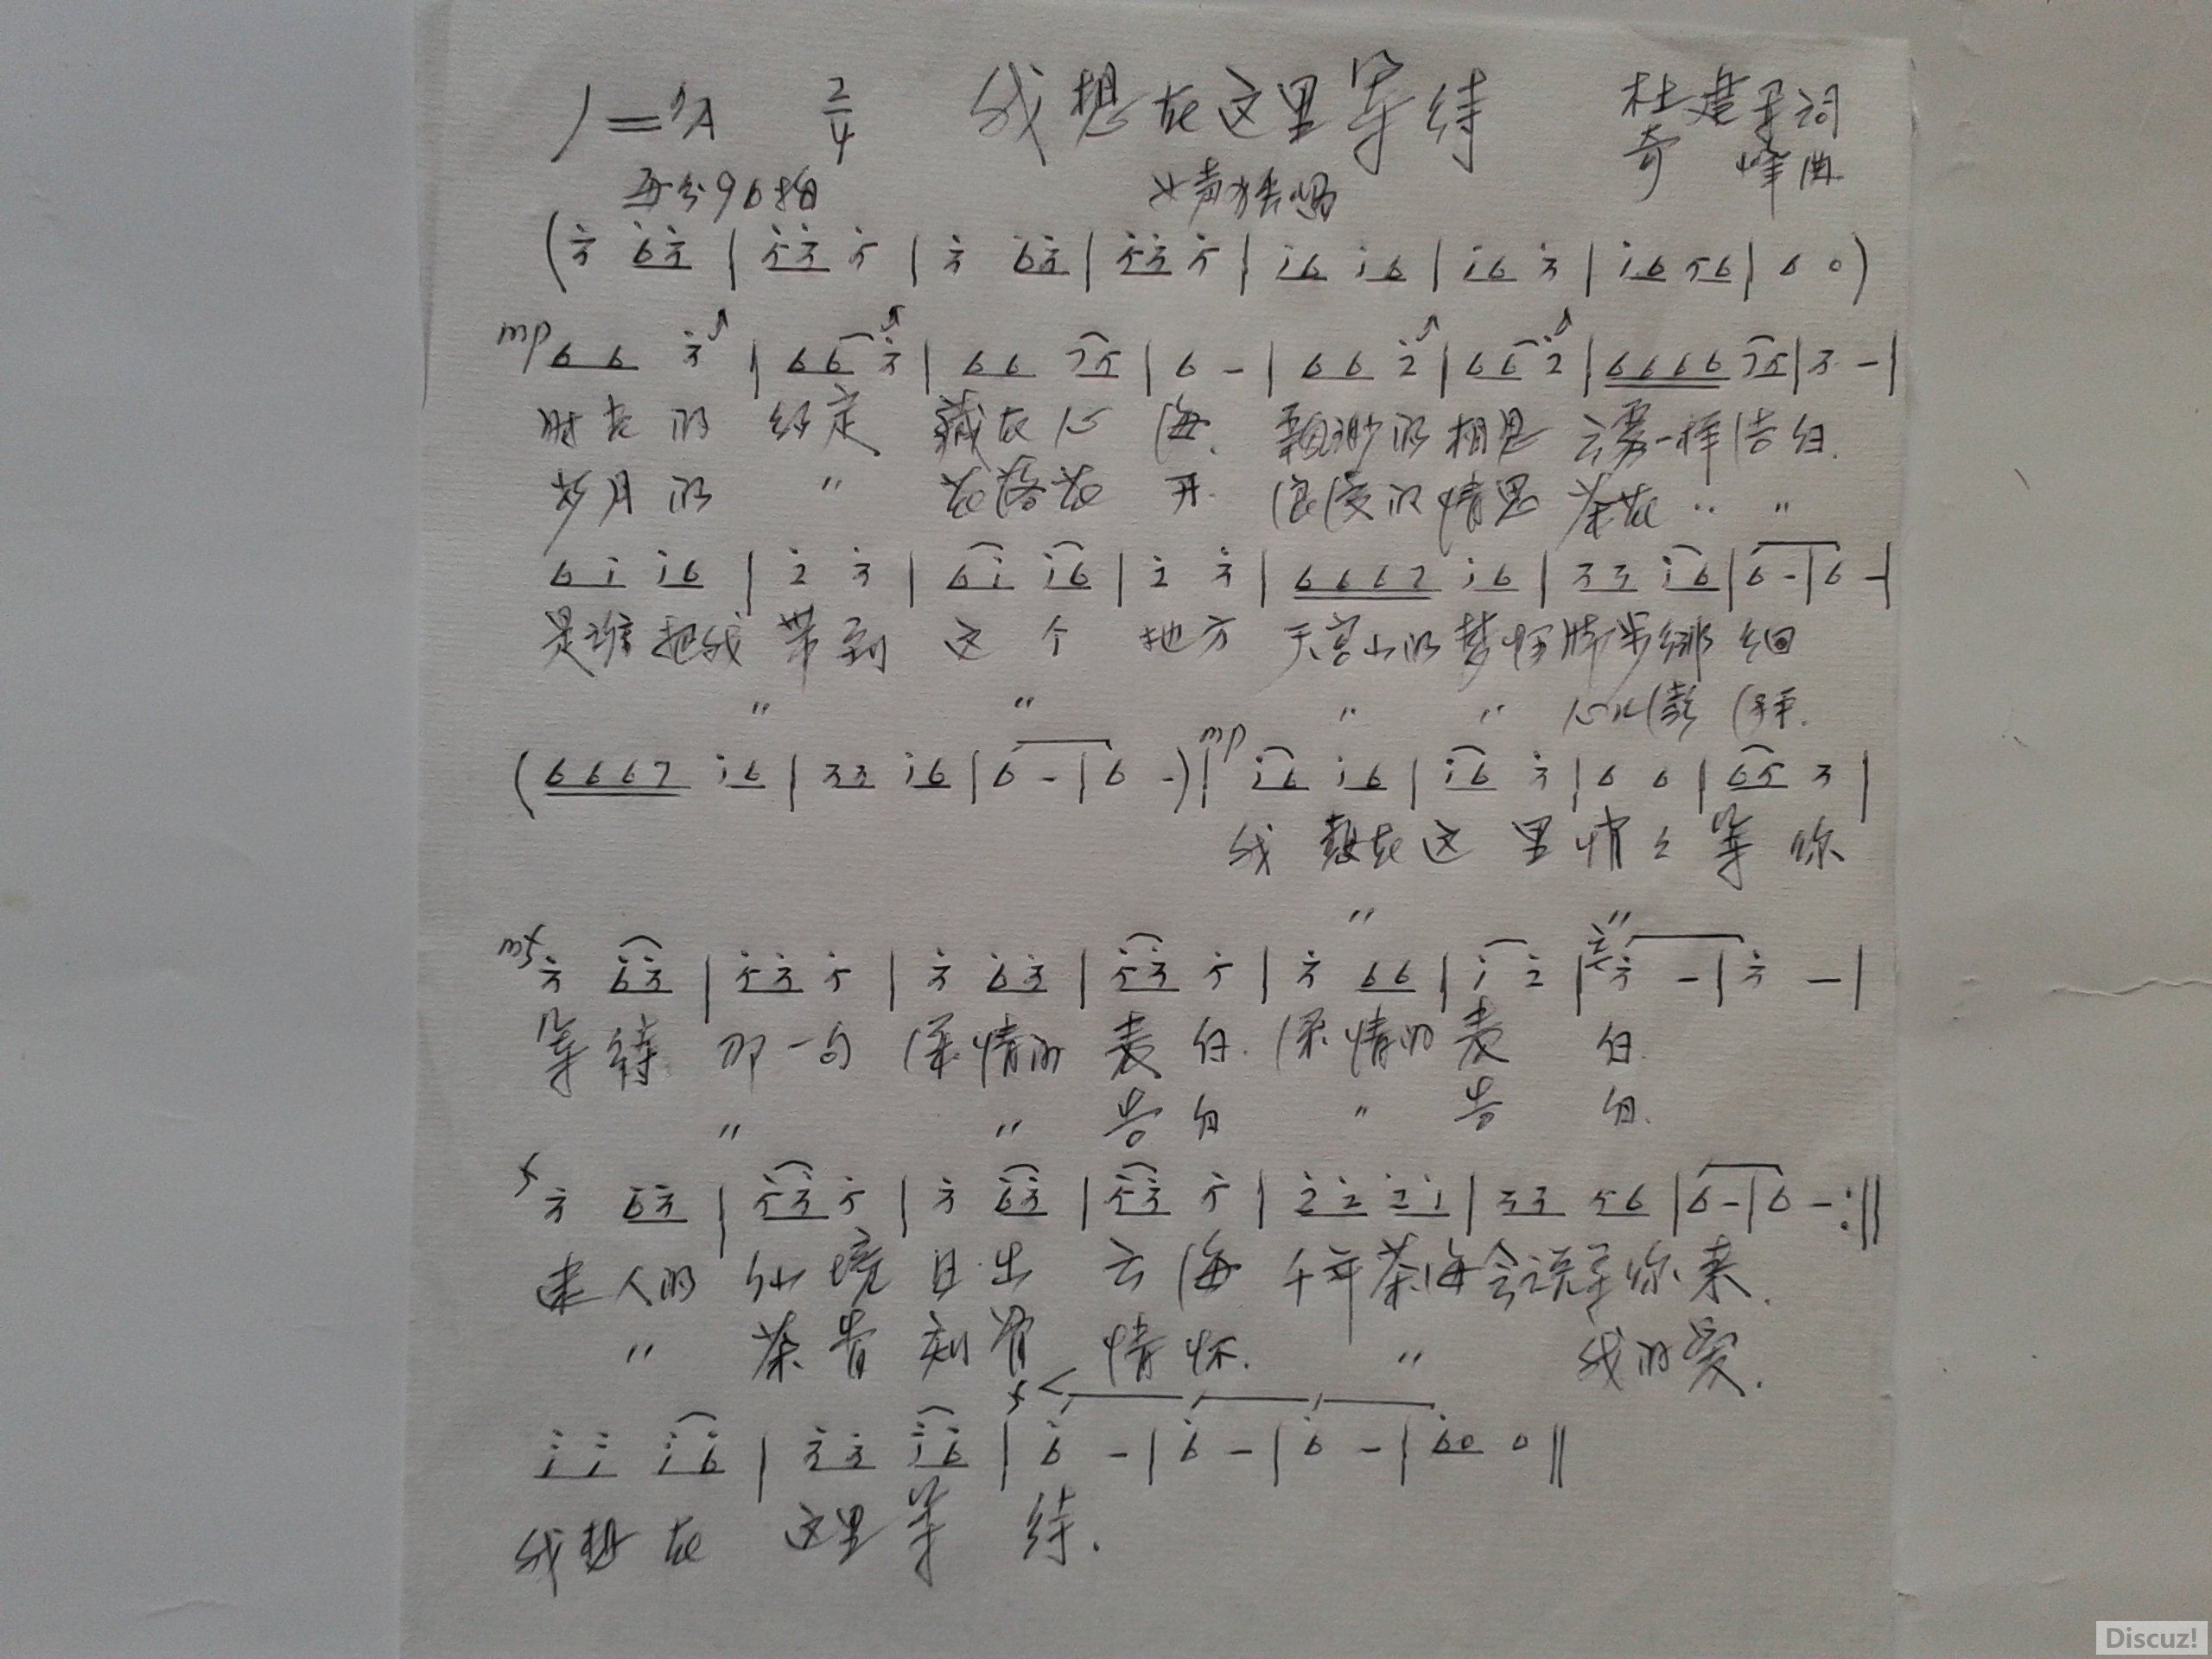 1=♭A 2/4 我想在这里等待 杜建军词
每分96拍 女声独唱 奇峰曲
(3̇ 6̇3̇ | 5̇3̇ 5̇ | 3̇ 6̇3̇ | 5̇3̇ 5̇ | i6 i6 | i6 3 | i6 56 | 6 0)
mp 66 3̇ | 66 3̇ | 66 75 | 6 - | 66 2̇ | 66 2̇ | 6666 75 | 3 - |
时光的约定 藏在心海. 飘渺的相思 云雾一样洁白.
岁月的 〃 花落花开. 浪漫的情思 茶花 〃 〃
6i i6 | 2̇ 3̇ | 6i i6 | 2̇ 3̇ | 6667 i6 | 33 i6 | 6 - | 6 - |
是谁把我带到这个地方 天宫山的梦怀脚步绑细
〃 〃 〃 〃 心水澎湃.
(6667 i6 | 33 i6 | 6 - | 6 -) | mp i6 i6 | i6 3̇ | 6 6 | 65 3 |
我想在这里悄々等你
〃 〃
mf 3̇ 6̇3̇ | 5̇3̇ 5̇ | 3̇ 6̇3̇ | 5̇3̇ 5̇ | 3̇ 66 | i 2̇ | 3̇ - | 3̇ - |
等待那一句深情的表白. 深情的表白.
〃 〃 告白 〃 告白.
f 3̇ 6̇3̇ | 5̇3̇ 5̇ | 3̇ 6̇3̇ | 5̇3̇ 5̇ | 2̇2̇ 2̇i | 33 56 | 6 - | 6 - :‖
迷人的仙境日出云海 千年茶海会说等你来.
〃 茶骨刻骨情怀. 〃 我的爱.
f <
i̇i̇ i̇6̇ | 3̇3̇ i̇6̇ | 6̇ - | 6̇ - | 6̇ - | 6̇0 0 ‖
我想在这里等待.
Discuz!